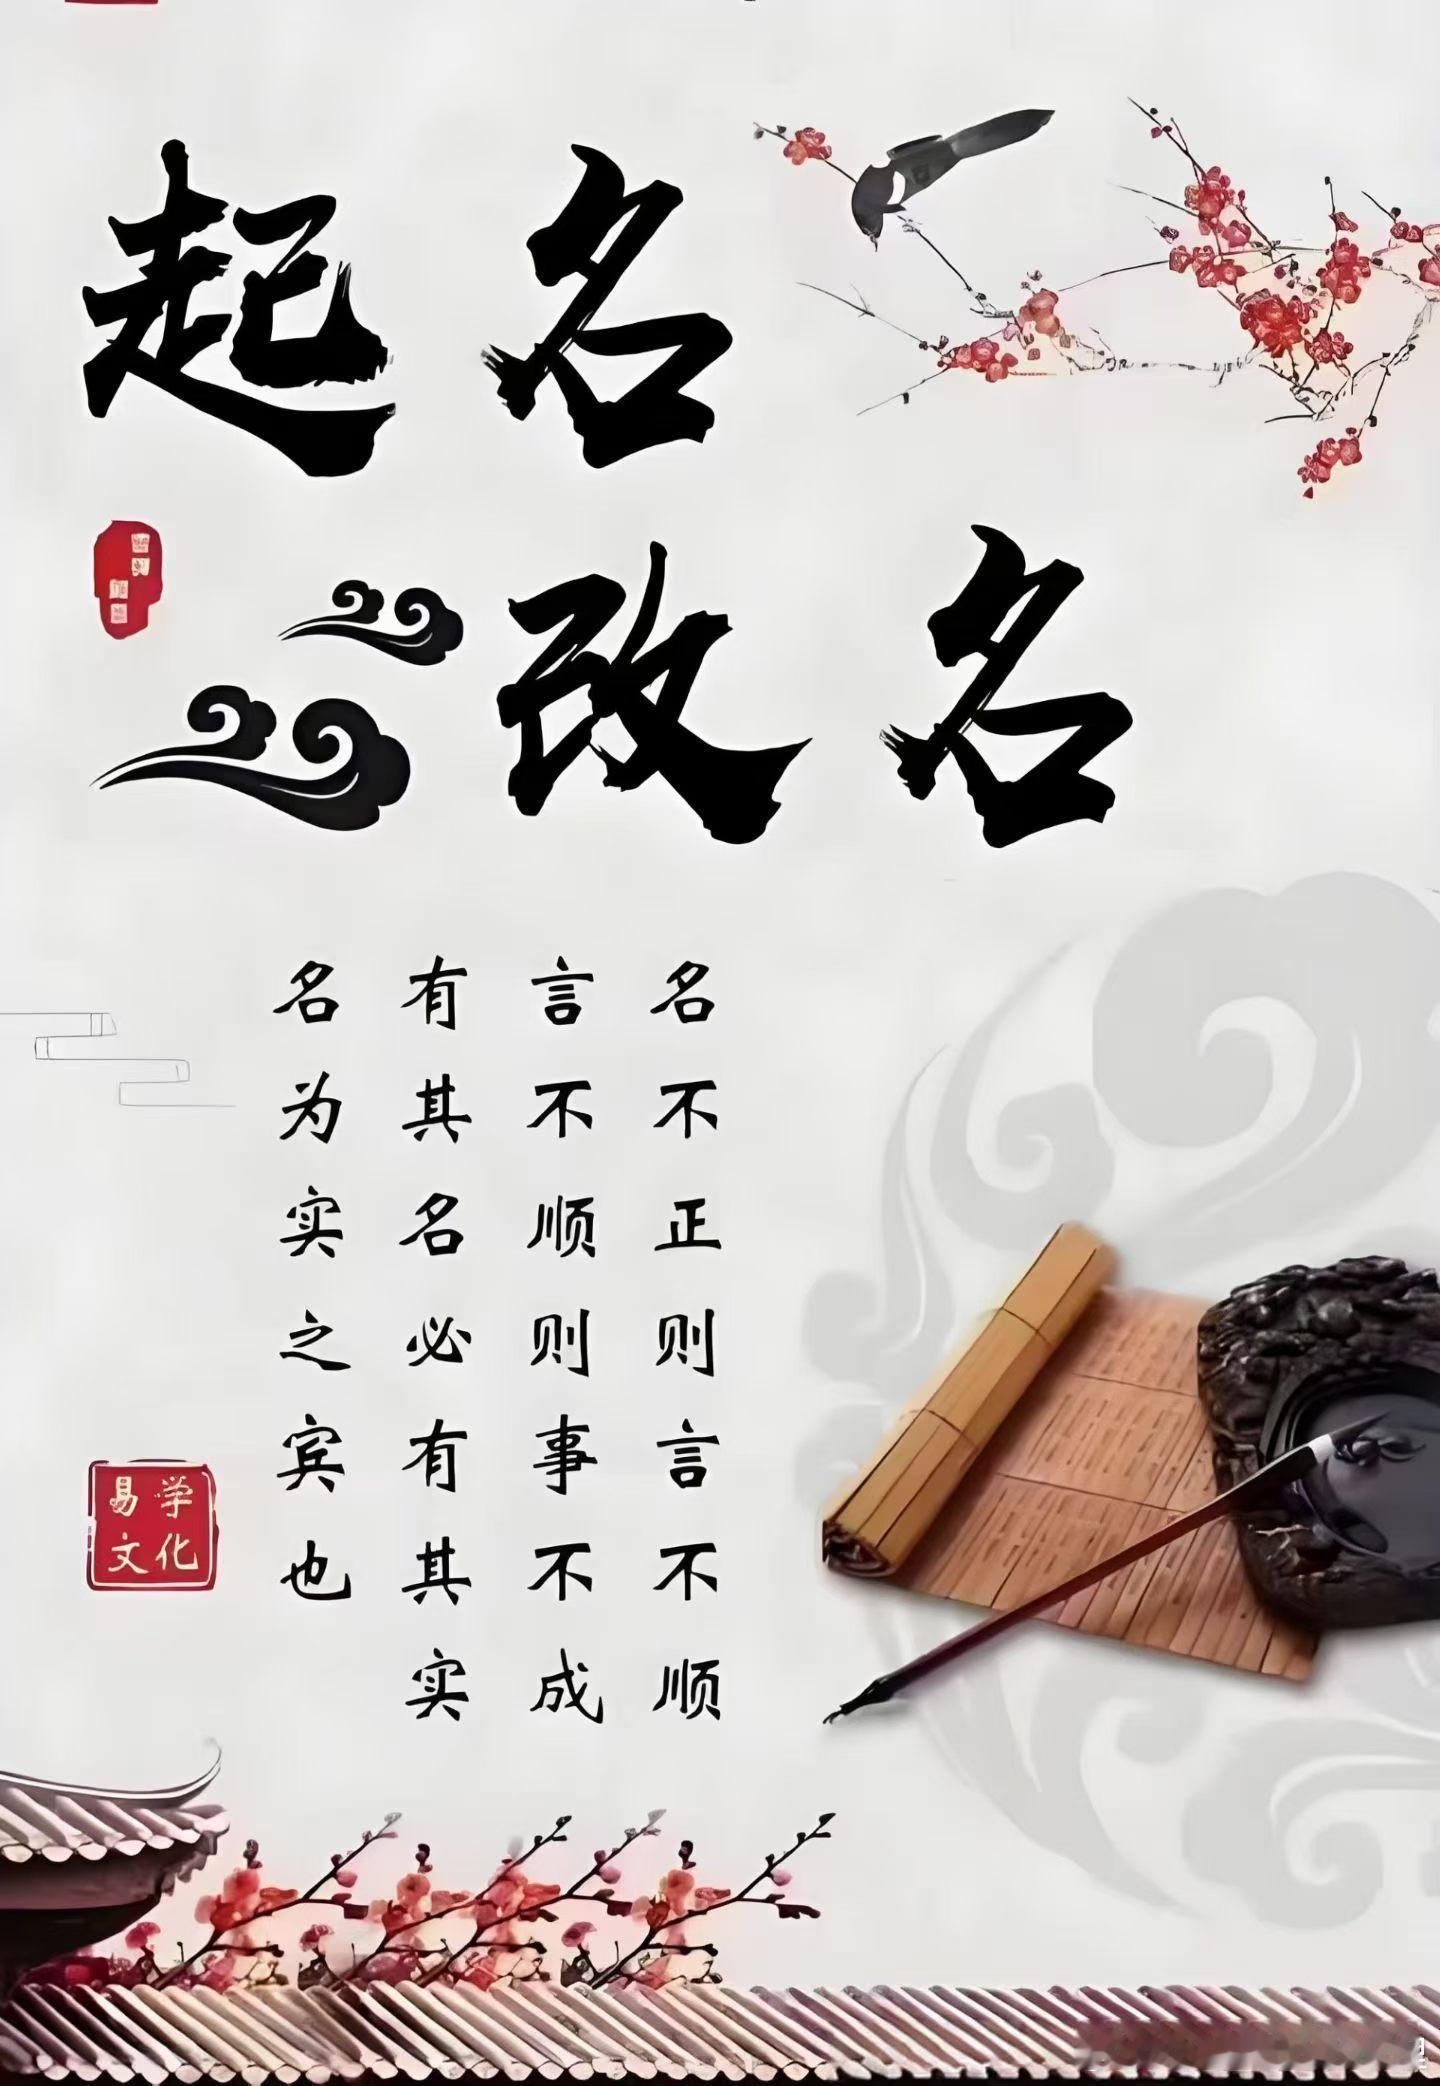 起名
改名
名不正则言不顺
言不顺则事不成
有其名必有其实
名为实之宾也
易学
文化